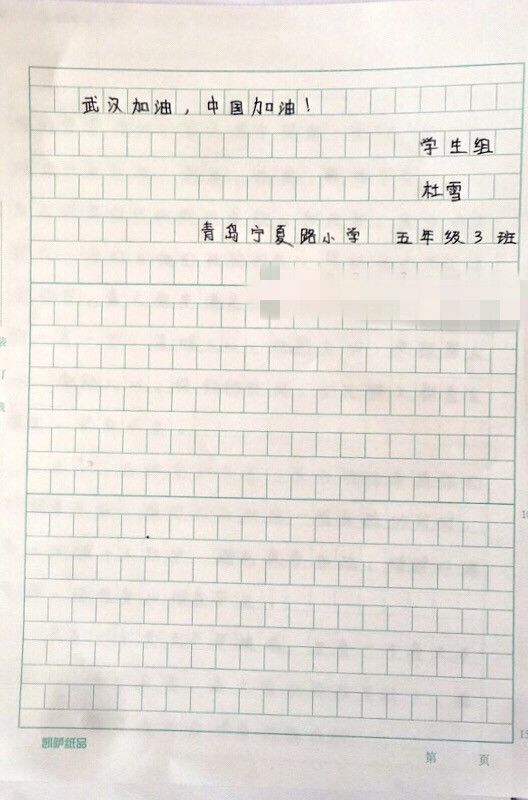 武汉加油，中国加油！
学生组
杜雪
青岛宁夏路小学 五年级3班
装
订
10
凯萨纸品
15
第 页